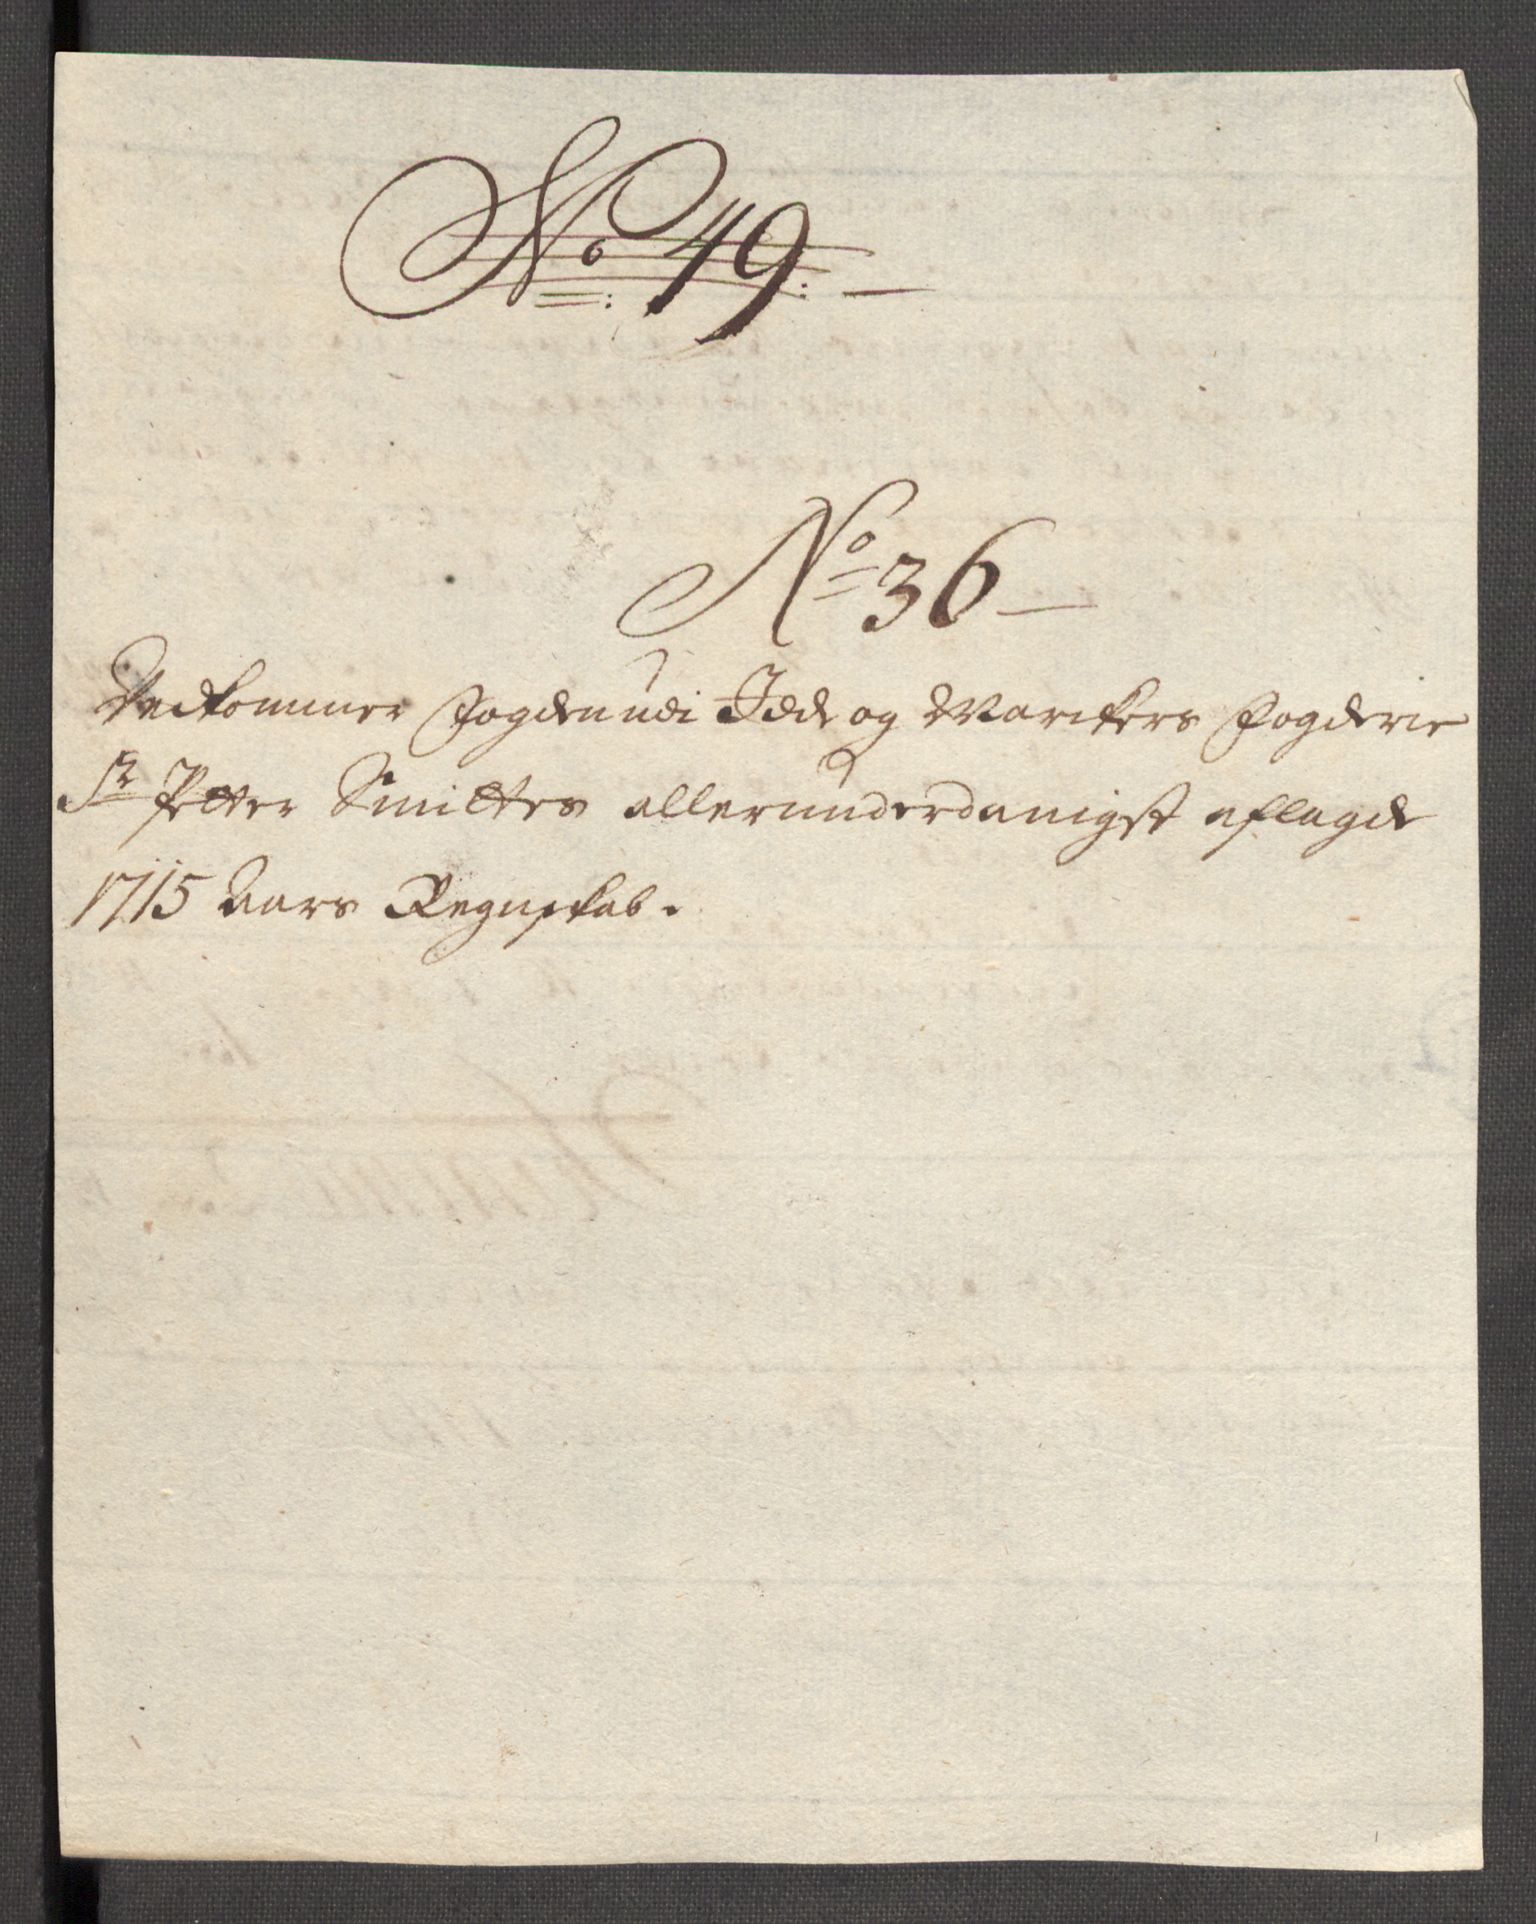 No: 49:
No 36
Vedkommer Fogden udi Idde og Marckers Fogderie
Sr Petter Smittes allerunderdanigst aflagde
1715 Aars Regnskab.